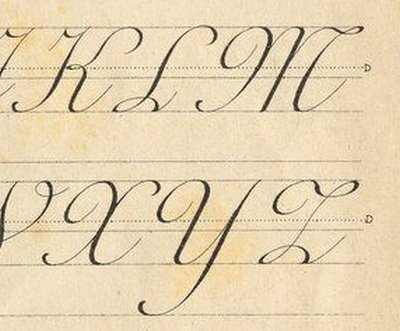 K L M D
X Y Z D